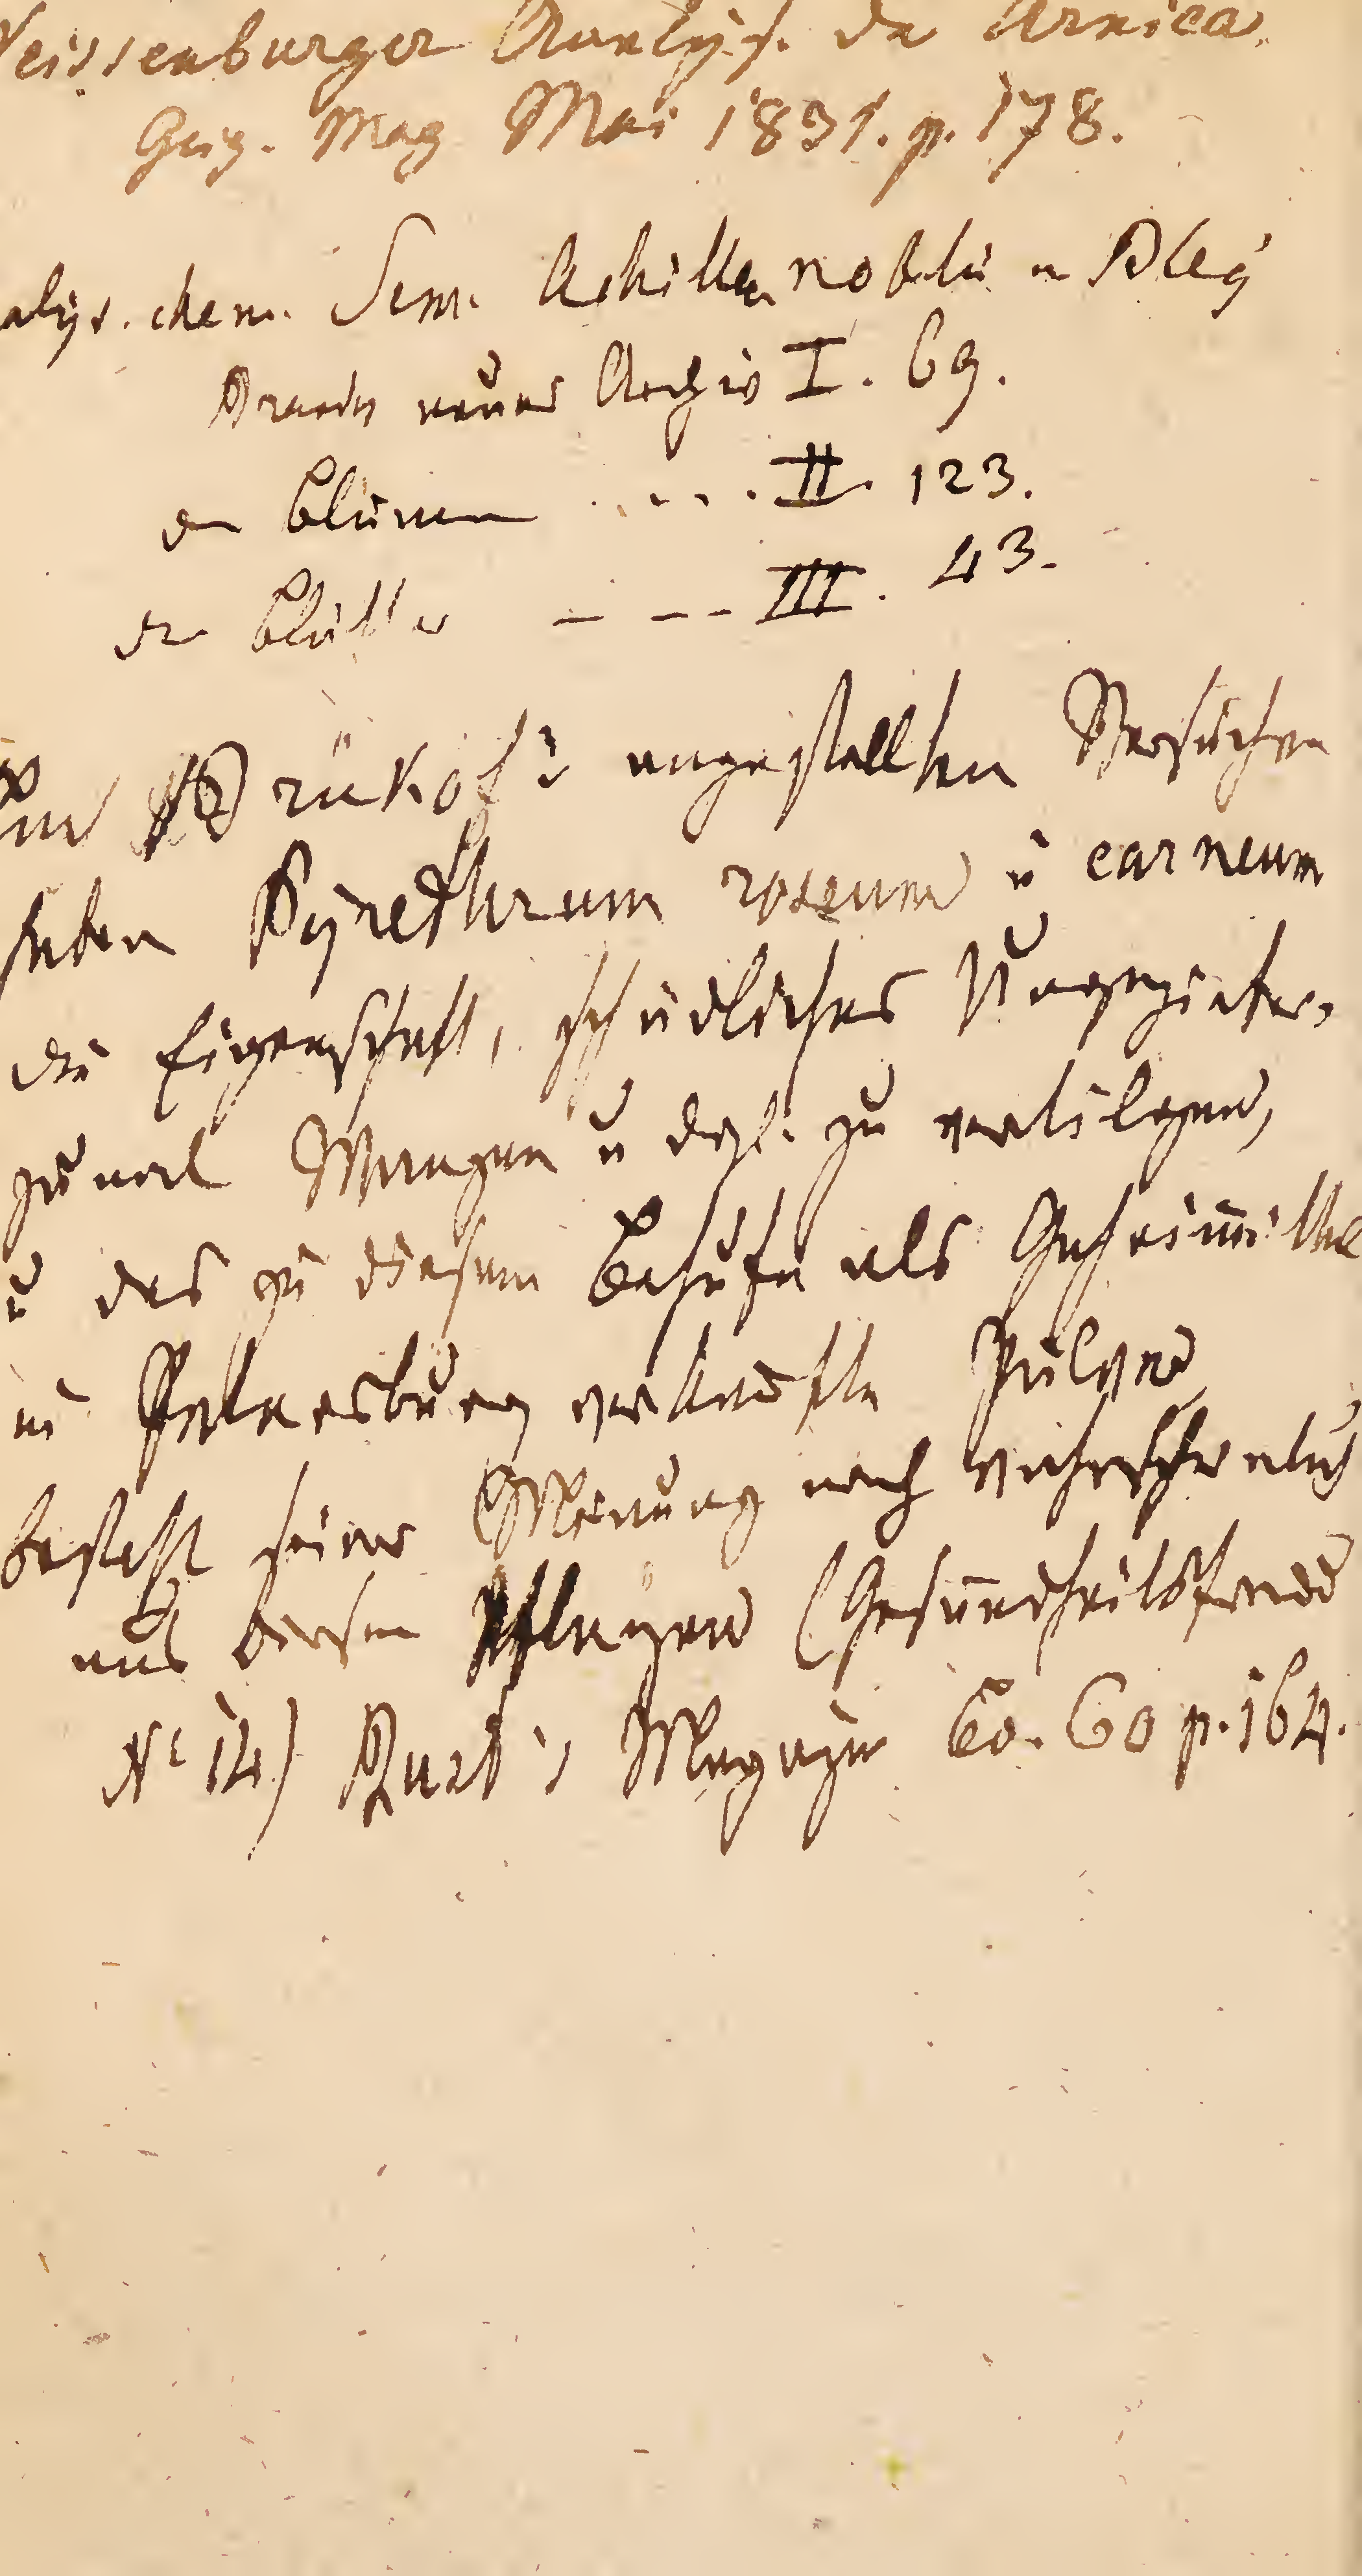 Weissenburger Analys. der Arnica.
Geig. Mag Mai 1831. p. 178.
alys. chem. Sem. Achilleae nobilis v Bley
Brandes neues Archiv I. 69.
der Blumen .... II. 123.
der Blätter --- III. 43.
angestellten Versuchen
haben Pyrethrum roseum u carneum
die Eigenschaft, schädliches Ungeziefer,
zumal Wanzen u dergl. zu vertilgen,
u das zu diesem Behufe als Geheimmittel
in Petersburg verkaufte Pulver
besteht seiner Meinung nach wahrscheinlich
aus diesen Pflanzen (Gesundheitsfreund
No 14) Rust's Magazin Bd. 60 p. 164.